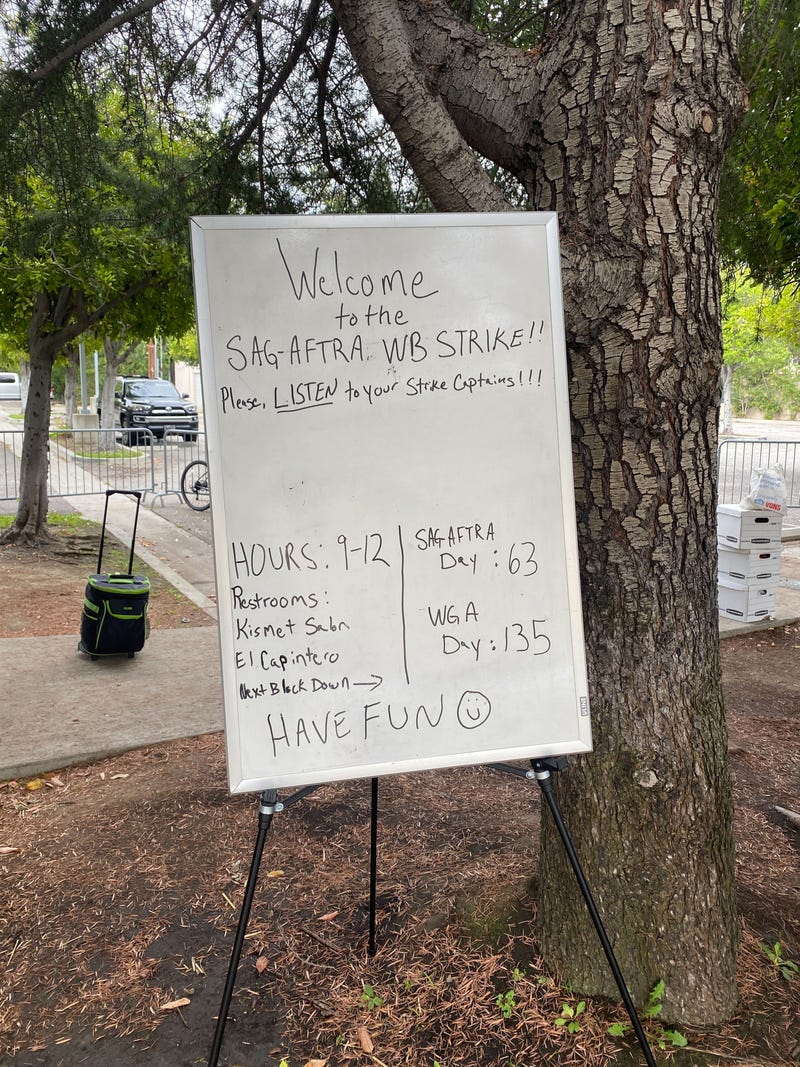 Welcome
to the
SAG-AFTRA WB STRIKE!!
Please, LISTEN to your Strike Captains!!!
HOURS: 9-12
Restrooms:
Kismet Salon
El Capintero
Next Block Down →
SAGAFTRA
Day: 63
WGA
Day: 135
HAVE FUN ☺
VONS